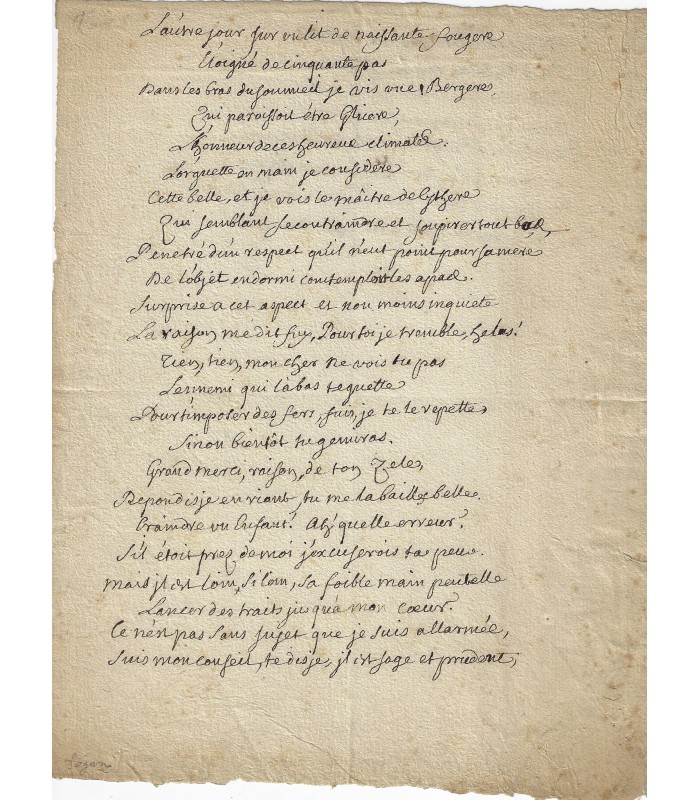 L'autre jour sur un lit de naissante fougere
Eloigné de cinquante pas
Dans les bras du sommeil je vis une Bergere,
Qui paroissoit être Glicere,
L'honneur de ces heureux climats.
Lorgnette en main je considère
Cette belle, et je vois le maître de Cythere
Qui semblant se contraindre et soupirer tout bas,
Penetré d'un respect qu'il n'eut point pour sa mere
De l'objet endormi contemploit les apas.
Surprise a cet aspect et non moins inquiete
La raison me dit fuy, Pour toi je tremble, helas!
Tien, tien, mon cher ne vois tu pas
L'ennemi qui là bas te guette
Pour t'imposer des fers, fuis, je te le repette,
Sinon bientôt tu gemiras.
Grand merci, raison, de ton zele,
Repondis je en riant, tu me la bailles belle.
Craindre un Enfant! Ah' quelle erreur?
S'il étoit prez de moi j'excuserois ta peur.
Mais jl est loin, si loin, sa foible main peut elle
Lancer des traits jusqu'à mon cœur?
Ce n'est pas sans sujet que je suis allarmée,
Suis mon conseil, te dis je, jl est sage et prudent,